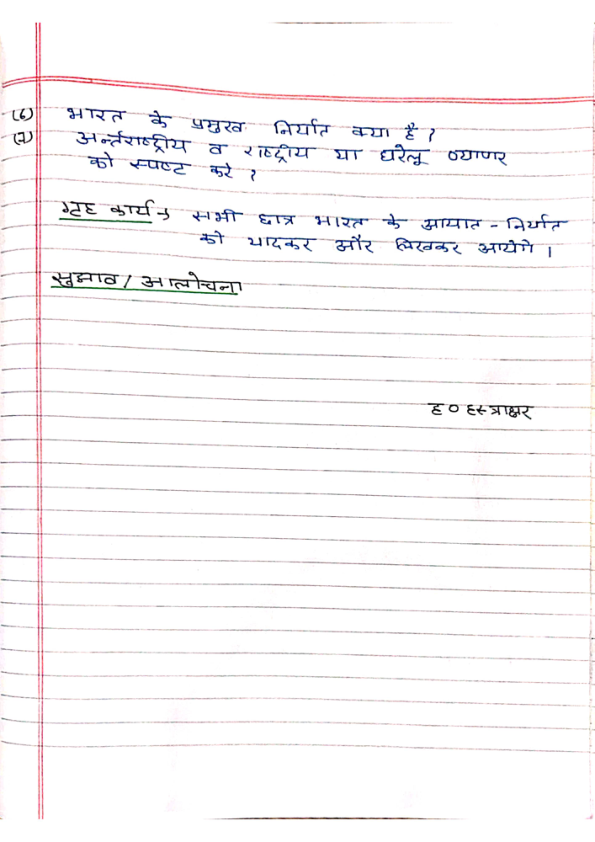 (6) भारत के प्रमुख निर्यात क्या है ?
(7) अर्न्तराष्ट्रीय व राष्ट्रीय या घरेलू व्यापार
को स्पष्ट करे ?
गृह कार्य → सभी छात्र भारत के आयात - निर्यात
को यादकर और लिखकर आयेगे ।
सुझाव / आलोचना
ह० हस्त्राक्षर